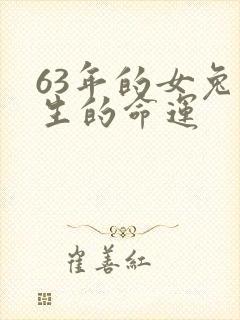 63年的女兔
生的命運
崔善紅